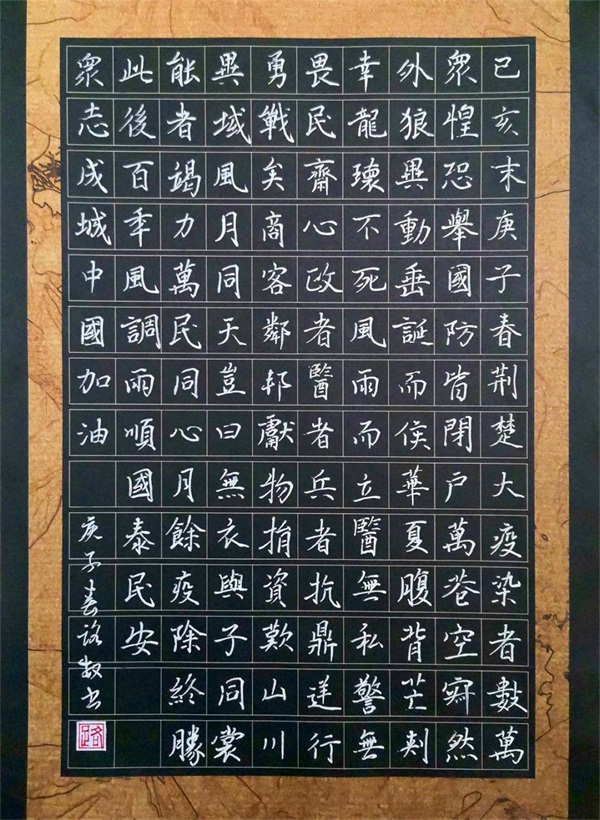 已亥末庚子春荆楚大疫染者數萬
衆惶恐舉國防皆閉戶萬巷空寂然
外狼異動垂誕而侯華夏腹背芒刺
幸龍不死風雨而立醫無私警無
畏民齊心政者醫者兵者抗鼎逆行
勇戰矣商客鄰邦獻物捐資歎山川
異域風月同天豈曰無衣與子同裳
能者竭力萬民同心月餘疫除終勝
此後百年風調雨順國泰民安
衆志成城中國加油
庚子春路叔书